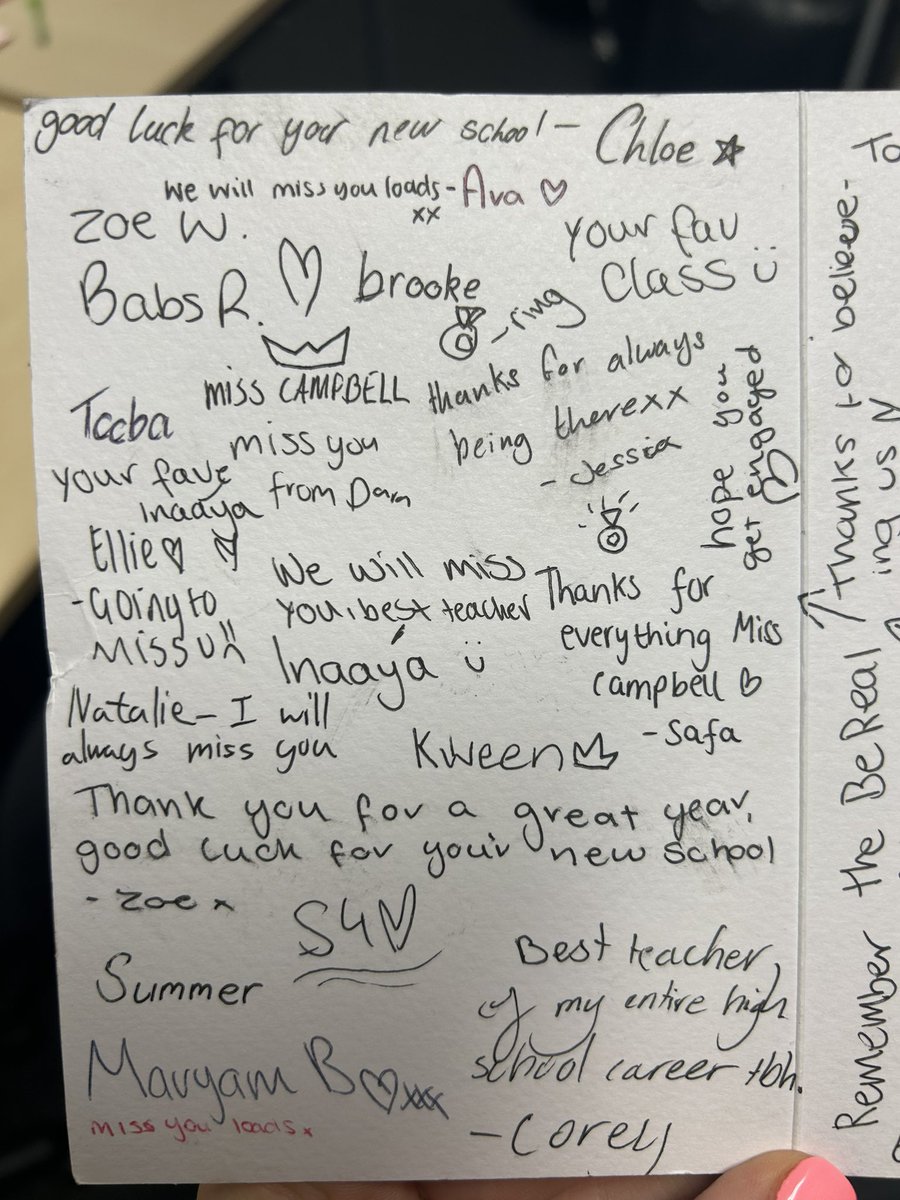 good luck for your new school - Chloe
we will miss you loads - Ava
xx
Zoe W.
your fav
class
Babs R.
brooke
- ring
miss CAMPBELL
miss you
from Dam
thanks for always
being there xx
- Jessica
hope you
get engaged
Tooba
your fave
inaaya
Ellie
- Going to
miss u
We will miss
you, best teacher
Inaaya
Thanks for
everything Miss
Campbell
- Safa
Natalie - I will
always miss you
Kween
Thank you for a great year,
good luck for your new school
- Zoe x
S4
Summer
Best teacher
of my entire high
school career tbh.
- Corey
Maryam B xxx
miss you loads x
To
Thanks to believe-
ing us
Remember the BeReal